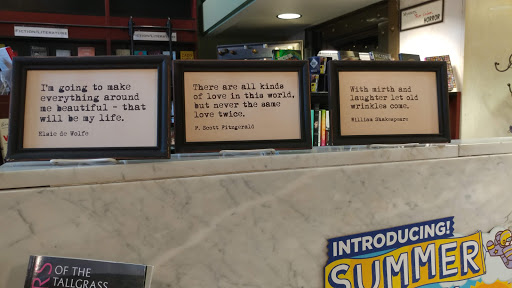 FICTION/LITERATURE
HORROR
I'm going to make
everything around
me beautiful - that
will be my life.
Elsie de Wolfe
There are all kinds
of love in this world,
but never the same
love twice.
F. Scott Fitzgerald
With mirth and
laughter let old
wrinkles come.
William Shakespeare
INTRODUCING!
SUMMER
RS OF THE
TALLGRASS